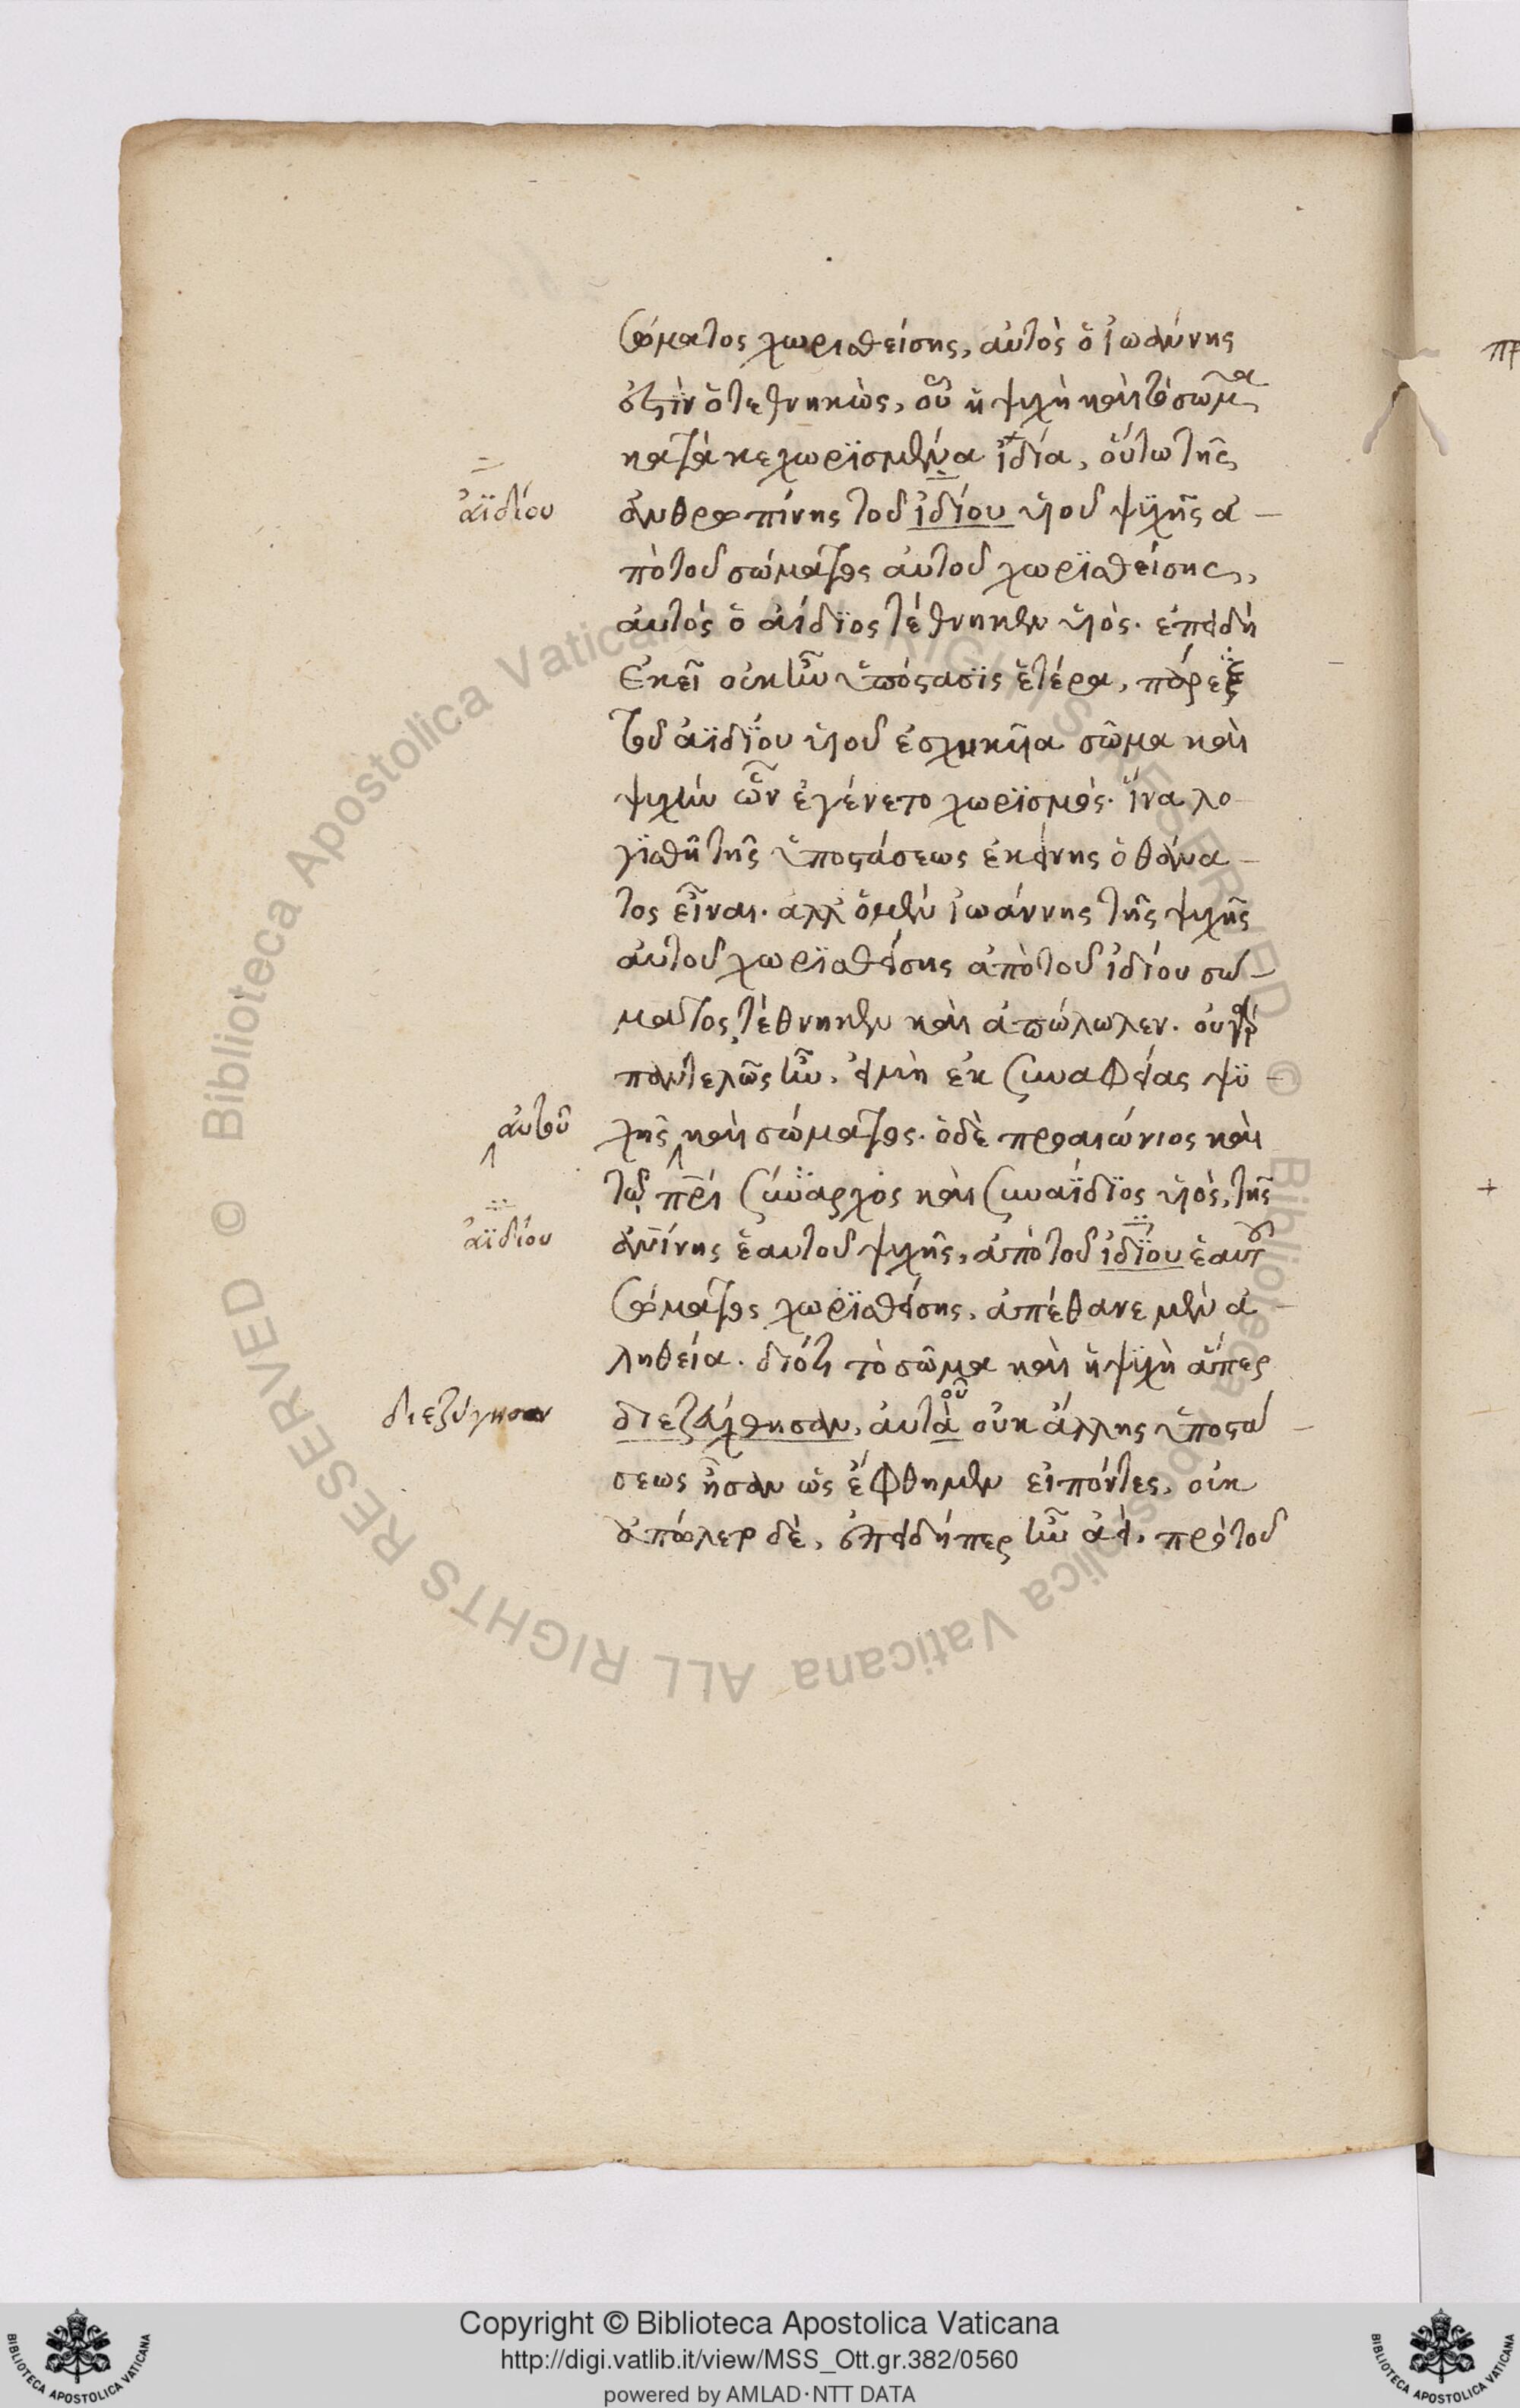 σώματος χωρισθείσης, αὐτὸς ὁ ἰωάννης
ἐστὶν ὁ τεθνηκὼς, οὗ ἡ ψυχὴ καὶ τὸ σῶμα
κατὰ κεχωρϊσμένα ἰδία, οὕτω τῆς
ἀϊδίου
ἀνθρωπίνης τοῦ ἰδίου υἱοῦ ψυχῆς ἀ-
πὸ τοῦ σώματος αὐτοῦ χωρϊσθείσης,
αὐτὸς ὁ ἀίδϊος τέθνηκεν υἱὸς. ἐπειδὴ
ἐκεῖ οὐκ ἦν ὑπόστασϊς ἑτέρα, πάρεξ
τοῦ ἀϊδΐου υἱοῦ ἐσχηκυῖα σῶμα καὶ
ψυχὴν ὧν ἐγένετο χωρϊσμὸς. ἵνα λο-
γϊσθῆ τῆς ὑποστάσεως ἐκείνης ὁ θάνα-
τος εἶναι. ἀλλ' ὁ μὲν ἰωάννης τῆς ψυχῆς
αὐτοῦ χωρϊσθείσης ἀπὸ τοῦ ἰδίου σώ-
ματος τέθνηκεν καὶ ἀπώλωλεν. οὐ γὰρ
παντελῶς ἦν, εἰ μὴ ἐκ συναφείας ψϋ-
αὐτοῦ
χῆς καὶ σώματος. ὁ δὲ προαιώνιος καὶ
τῶ πρὶ συνάναρχος καὶ συναΐδϊος υἱὸς, τῆς
ἀϊδίου
ἀνίνης ἑαυτοῦ ψυχῆς, ἀπὸ τοῦ ἰδΐου ἑαυτοῦ
σώματος χωρϊσθείσης, ἀπέθανε μὲν ἀ-
ληθεία. διότι τὸ σῶμα καὶ ἡ ψϋχὴ ἅπερ
διεζύγησαν
διεζεύχθησαν, αὐτὰ οὐκ ἄλλης ὑποστά-
σεως ἦσαν ὡς ἔφθημεν εἰπόντες, οὐκ
ἀπώλετο δὲ, ἐπειδήπερ ἦν ἀεὶ, πρὸ τοῦ
Copyright © Biblioteca Apostolica Vaticana
http://digi.vatlib.it/view/MSS_Ott.gr.382/0560
powered by AMLAD·NTT DATA